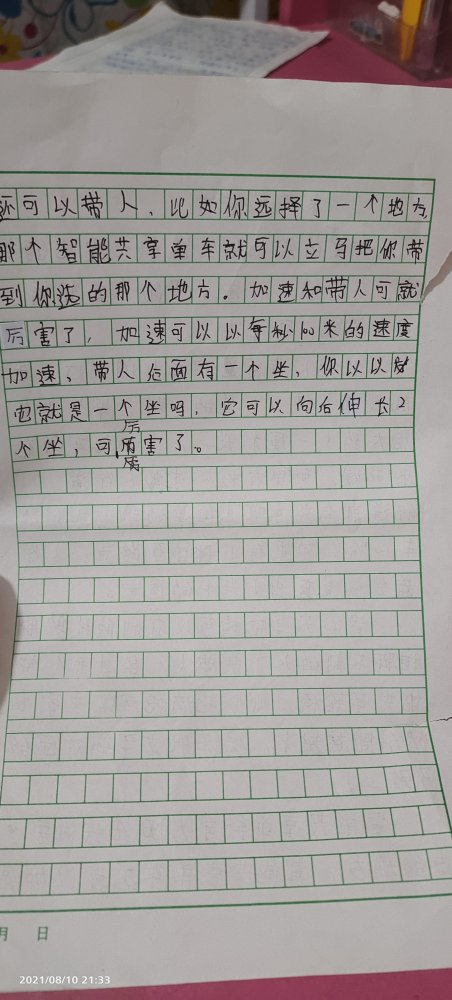 还可以带人、比如你选择了一个地方,
那个智能共享单车就可以立马把你带
到你选的那个地方。加速和带人可就
厉害了,加速可以以每秒100米的速度
加速、带人后面有一个坐,你以以为
它就是一个坐吗,它可以向后伸长2
个坐,可厉害了。
月 日
2021/08/10 21:33